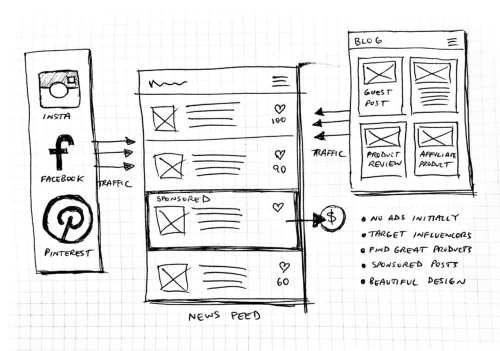 INSTA
FACEBOOK
PINTEREST
TRAFFIC
100
90
SPONSORED
60
NEWS FEED
$
TRAFFIC
BLOG
GUEST
POST
PRODUCT
REVIEW
AFFILIATE
PRODUCT
• NO ADS INITIALLY
• TARGET INFLUENCERS
• FIND GREAT PRODUCTS
• SPONSORED POSTS
• BEAUTIFUL DESIGN